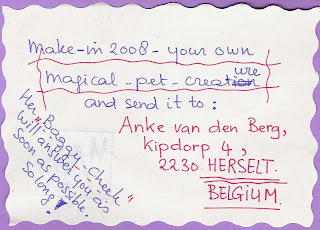 Make-in 2008-your own
magical-pet-creature
and send it to :
Anke van den Berg,
Kipdorp 4,
2230 HERSELT.
BELGIUM.
Her "Baggy-Cheek"
will answer you as
soon as possible.
So long!